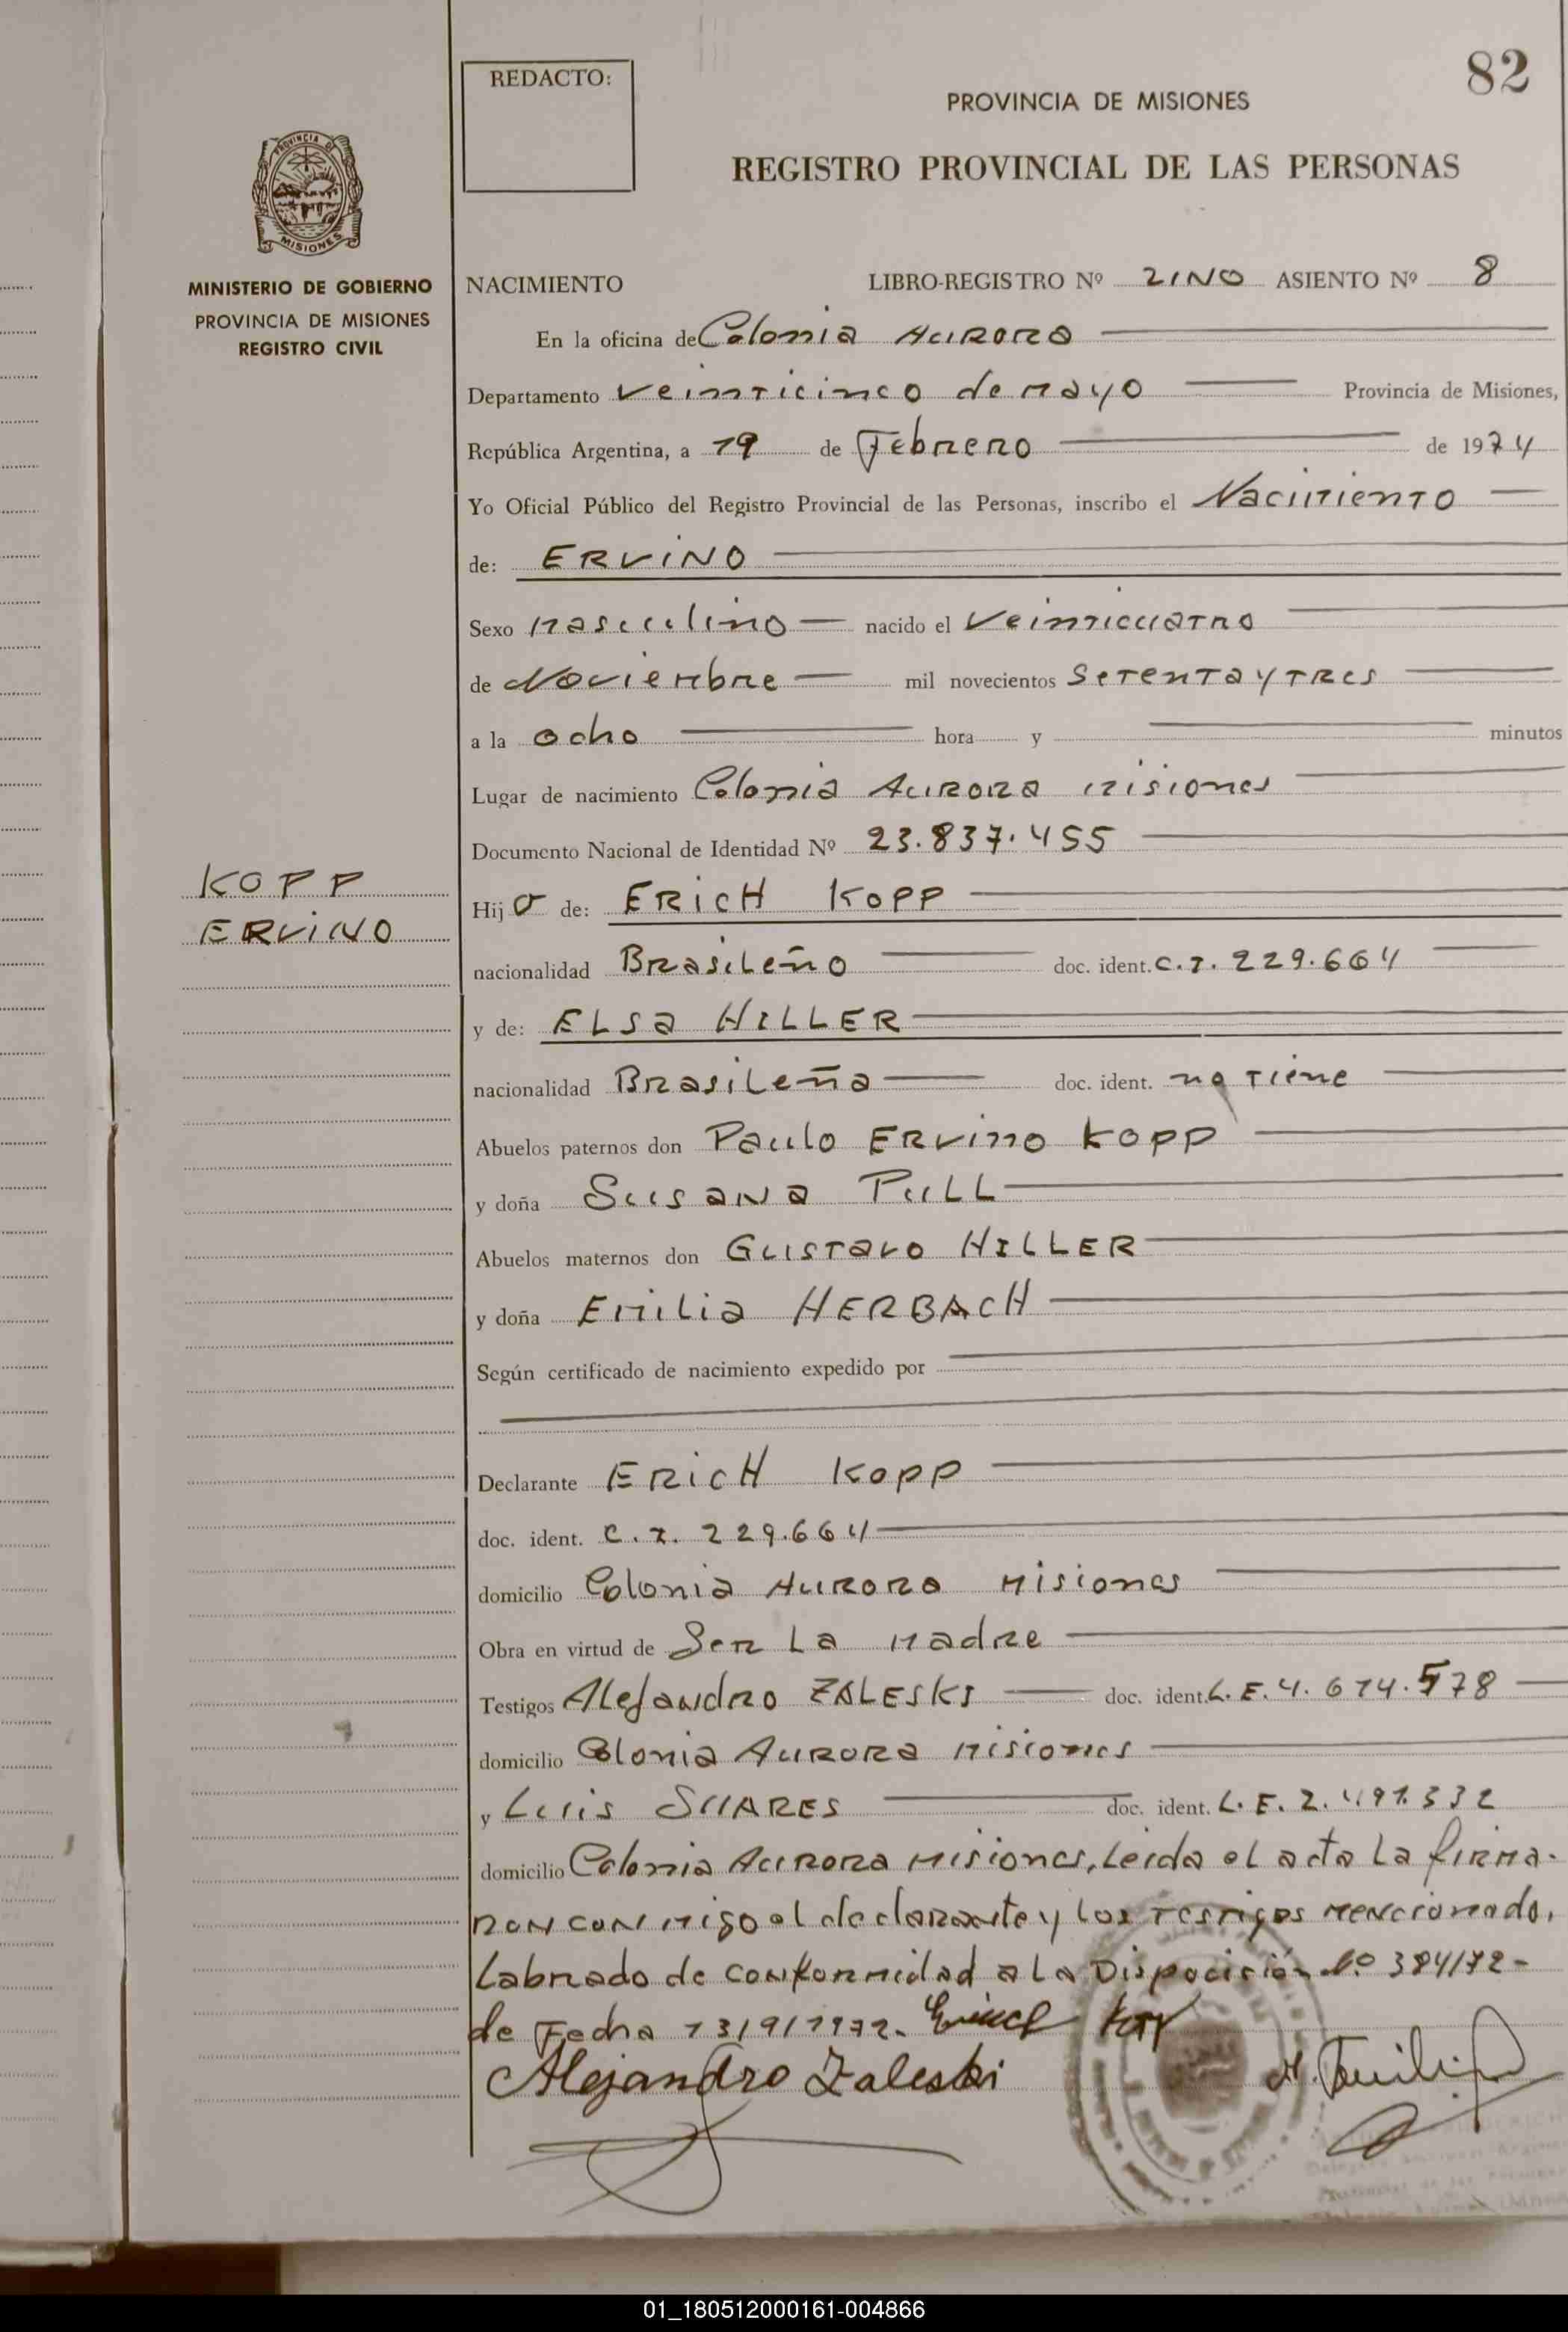 82
REDACTO:
PROVINCIA DE MISIONES
REGISTRO PROVINCIAL DE LAS PERSONAS
PROVINCIA DE
MISIONES
MINISTERIO DE GOBIERNO
PROVINCIA DE MISIONES
REGISTRO CIVIL
NACIMIENTO LIBRO-REGISTRO Nº ASIENTO Nº 8
En la oficina de Colonia Aurora
Departamento Veinticinco de Mayo Provincia de Misiones,
República Argentina, a 19 de Febrero de 1974
Yo Oficial Público del Registro Provincial de las Personas, inscribo el Nacimiento
de: ERVINO
Sexo Masculino nacido el Veinticuatro
de Noviembre mil novecientos Setenta y tres
a la ocho hora y minutos
Lugar de nacimiento Colonia Aurora Misiones
Documento Nacional de Identidad Nº 23.837.455
KOPP
ERVINO
Hijo de: ERICH KOPP
nacionalidad Brasileño doc. ident. C.I. 229.664
y de: ELSA HILLER
nacionalidad Brasileña doc. ident. no tiene
Abuelos paternos don Paulo ERVino KOPP
y doña Susana PULL
Abuelos maternos don Gustavo HILLER
y doña Emilia HERBACH
Según certificado de nacimiento expedido por
Declarante ERICH KOPP
doc. ident. C.I. 229.664
domicilio Colonia Aurora Misiones
Obra en virtud de Ser La Madre
Testigos Alejandro ZALESKI doc. ident. L.E. 4.614.578
domicilio Colonia Aurora Misiones
y Luis SUARES doc. ident. L.E. 2.491.332
domicilio Colonia Aurora Misiones, Leida el acta La firma-
ron con migo el declarante y los testigos mencionado,
Labrado de conformidad a La Disposición Nº 384/72-
de Fecha 13/9/1972.
Alejandro Zaleski
01_180512000161-004866